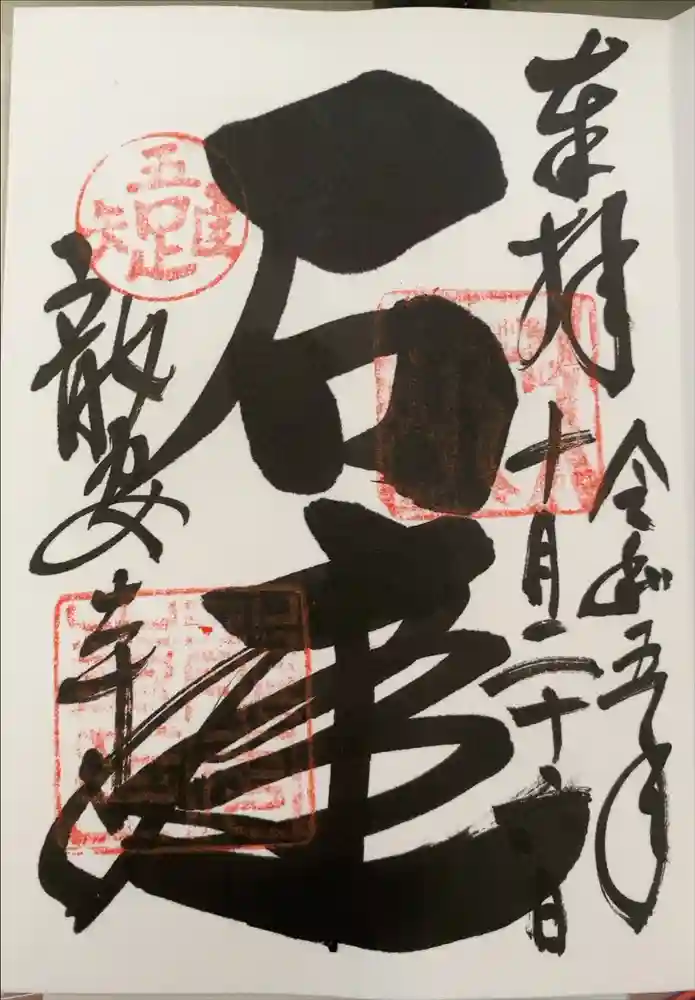 奉拝
令和五年
十月二十六日
石庭
龍安寺
吾唯足知